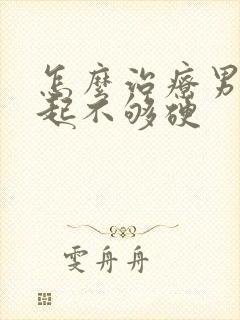 怎麼治療男
起不够硬
雯舟舟